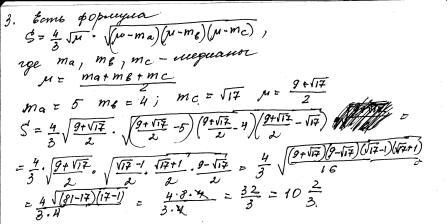 3. Есть формула
S = 4/3 √μ · √((μ-ma)(μ-mв)(μ-mc)) ,
где ma, mв, mc - медианы
μ = (ma+mв+mc)/2
ma = 5 mв = 4; mc = √17 μ = (9+√17)/2
S = 4/3 √((9+√17)/2) · √(((9+√17)/2 - 5)((9+√17)/2 - 4)((9+√17)/2 - √17)) =
= 4/3 · √((9+√17)/2) · √((√17-1)/2 · (√17+1)/2 · (9-√17)/2) = 4/3 √((9+√17)(9-√17)(√17-1)(√17+1)/16)
= 4√((81-17)(17-1))/(3·4) = 4·8·4/(3·4) = 32/3 = 10 2/3.